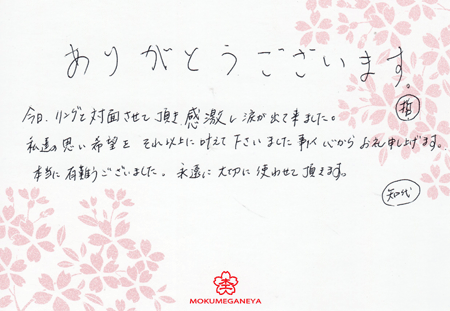 ありがとうございます。
今日、リングと対面させて頂き感激し涙が出て来ました。
哲
私達の思い希望を それ以上に叶えて下さいました事、心からお礼申し上げます。
本当に有難うございました。永遠に大切に使わせて頂きます。
知代
MOKUMEGANEYA